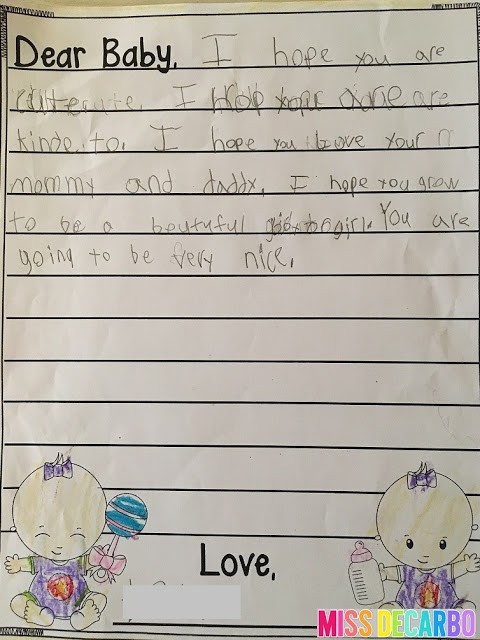 Dear Baby, I hope you are
I hope you are
kinde to. I hope you Love your
mommy and daddy. I hope you grow
to be a beutuful girl. You are
going to be very nice.
Love,
MISS DECARBO